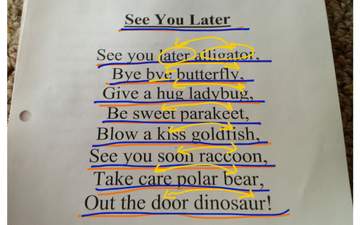 See You Later
See you later alligator,
Bye bye butterfly,
Give a hug ladybug,
Be sweet parakeet,
Blow a kiss goldfish,
See you soon raccoon,
Take care polar bear,
Out the door dinosaur!